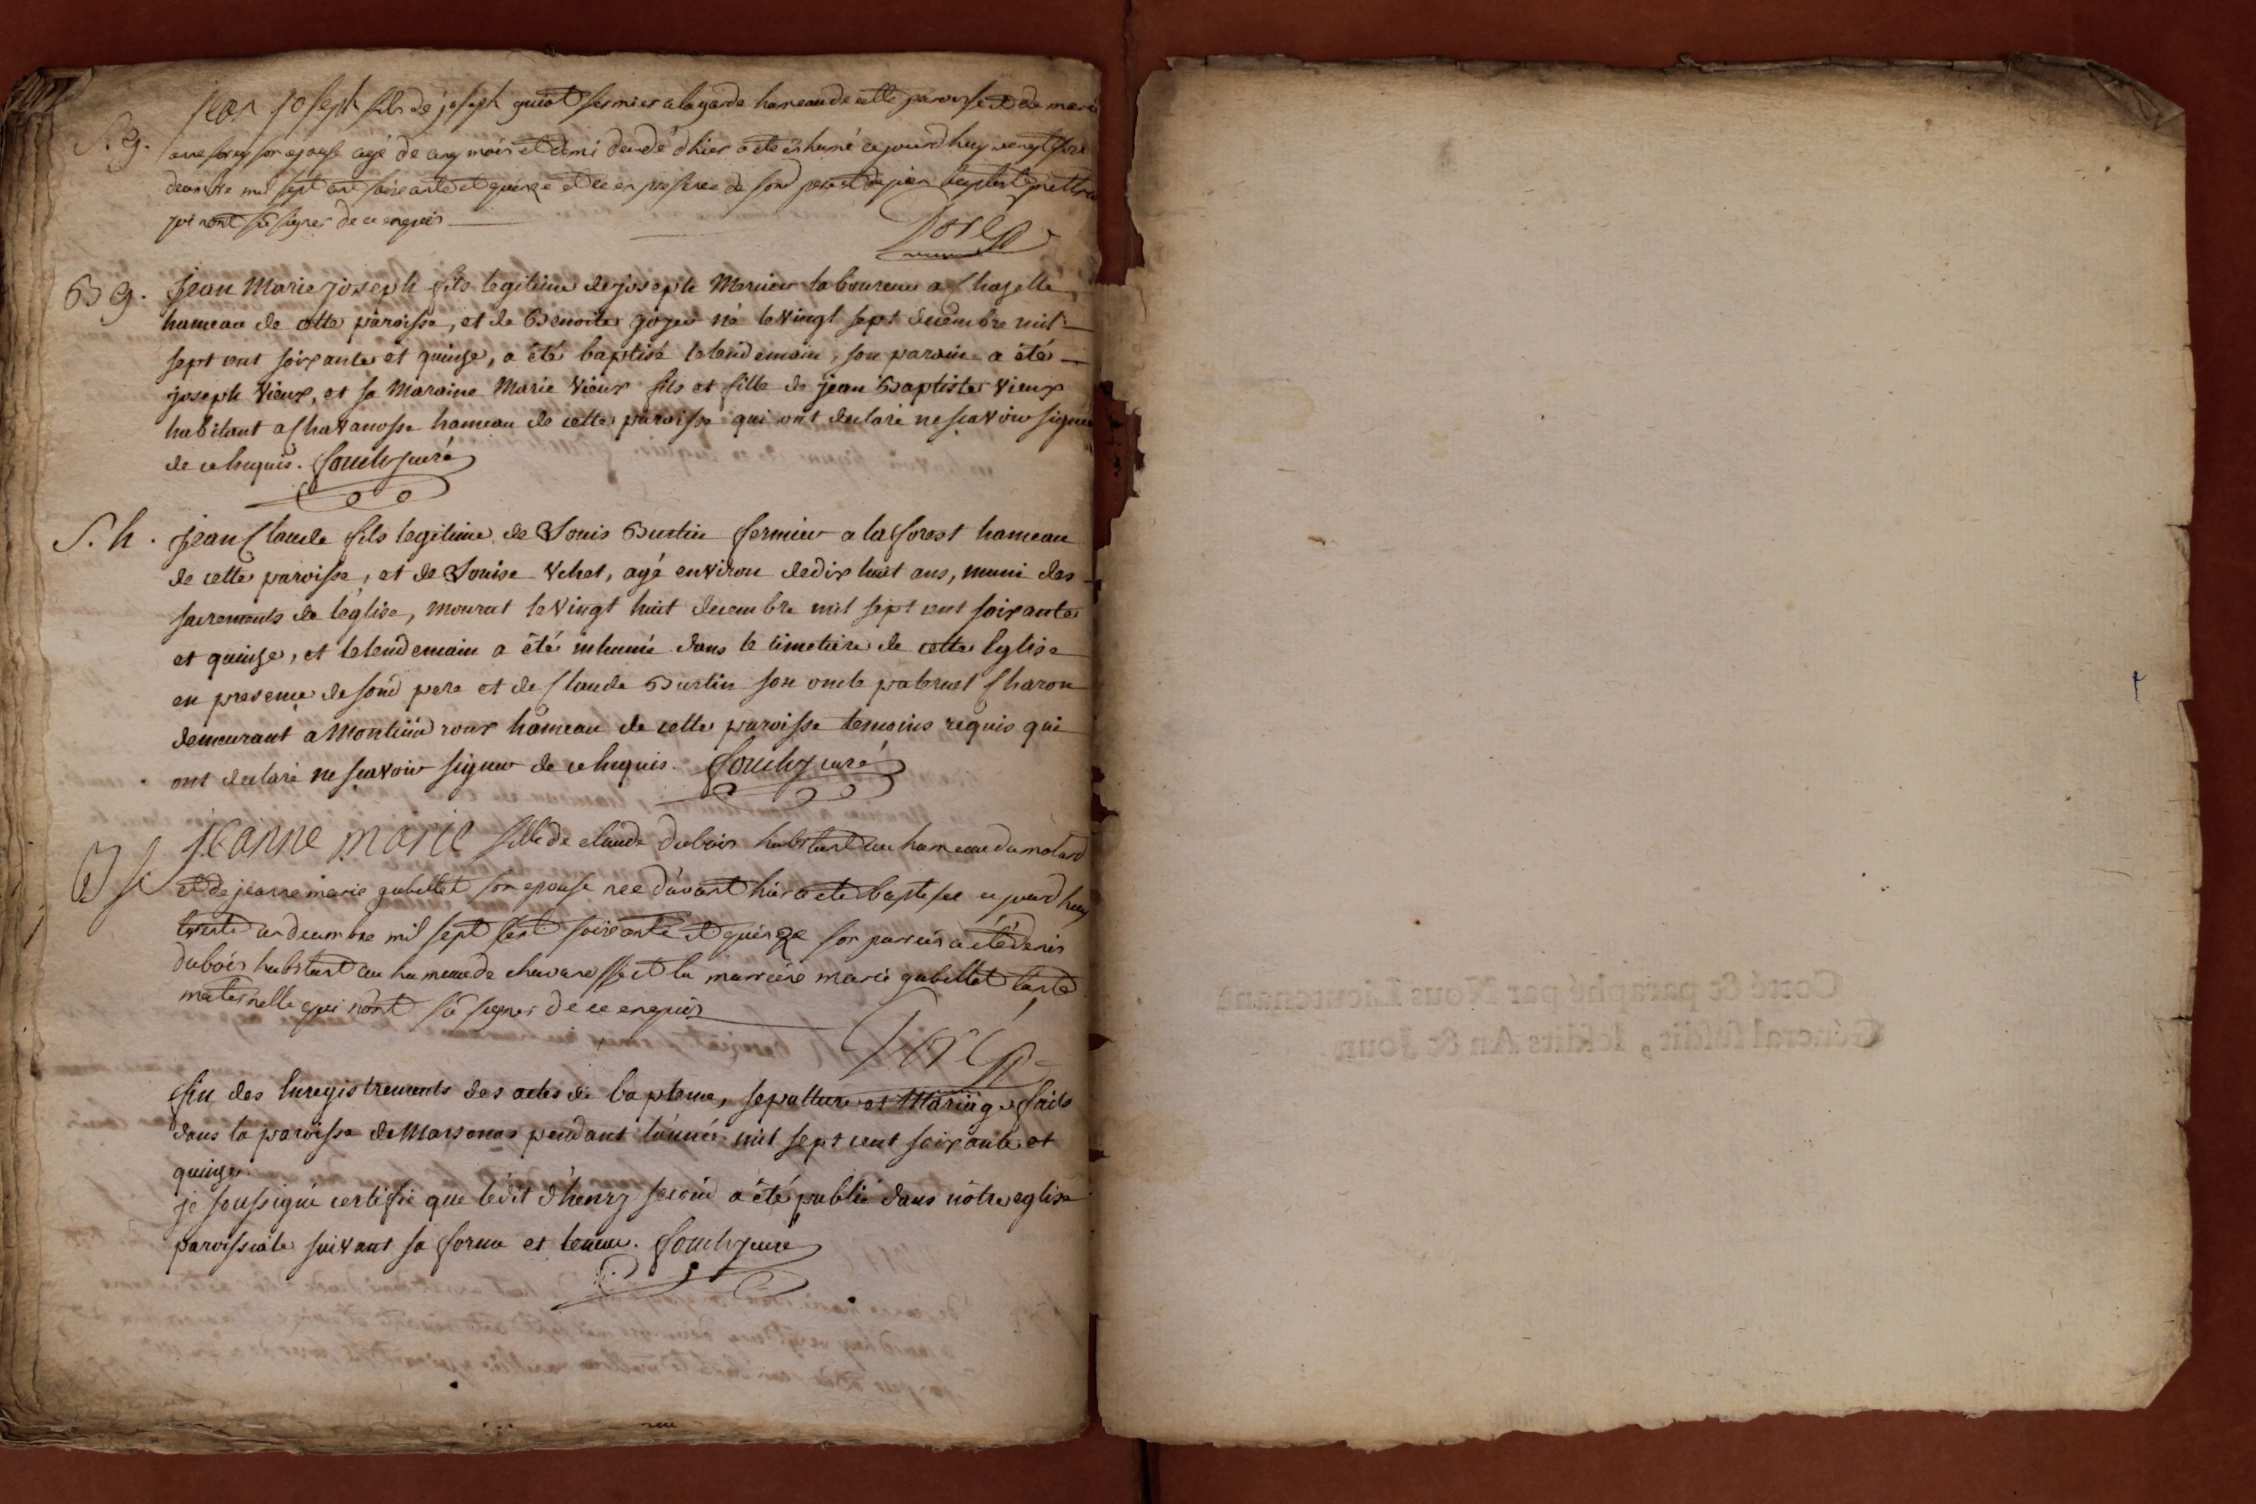 S. g.
jean joseph fils de joseph guiot fermier a la garde hameau de cette paroisse et de marie
son epouse agé de cinq mois et demi decedé d'hier a eté inhumé ce jourd huy vingt
decembre mil sept cent soixante et quinze et ce en presence de son pere et de jean baptiste
qui n'ont sû signer de ce enquis
B g.
jean Marie joseph fils legitime de joseph Mernier laboureur a Chazelle
hameau de cette paroisse, et de Benoite joyeu né le vingt sept decembre mil
sept cent soixante et quinze, a été baptisé le lendemain, son parain a été
joseph Vieux, et sa Maraine Marie Vieux fils et fille de jean Baptiste Vieux
habitant a Chavanosse hameau de cette paroisse qui ont declaré ne scavoir signer
de ce Enquis. curé
S. h.
jean Claude fils legitime de Louis Burtin fermier a la forest hameau
de cette paroisse, et de Louise Vchet, agé environ de dix huit ans, muni des
sacrements de l'église, mourut le vingt huit decembre mil sept cent soixante
et quinze, et le lendemain a été inhumé dans le cimetiere de cette Eglise
en presence de sond pere et de Claude Burtin son oncle paternel Charon
demeurant a hameau de cette paroisse temoins requis qui
ont declaré ne scavoir signer de ce Enquis. curé
jeanne marie fille de claude dubois habitant au hameau du molard
et de jeanne marie gubillet son epouse nee d'avant hier a eté baptisee ce jourd huy
trente un decembre mil sept cent soixante et quinze son parrein a été denis
dubois habitant au hameau de chavanosse et la marreine marie gubillet tante
maternelle qui n'ont sû signer de ce enquis
fin des Enregistrements des actes de bapteme, sepulture et Mariage faits
dans la paroisse de Marsonas pendant l'année mil sept cent soixante et
quinze.
je soussigné certifie que l'edit d'henry second a été publié dans nôtre eglise
paroissiale suivant sa forme et teneur. curé
Cotté & paraphé par Nous Lieutenant
Général susdit, lesdits An & Jour.